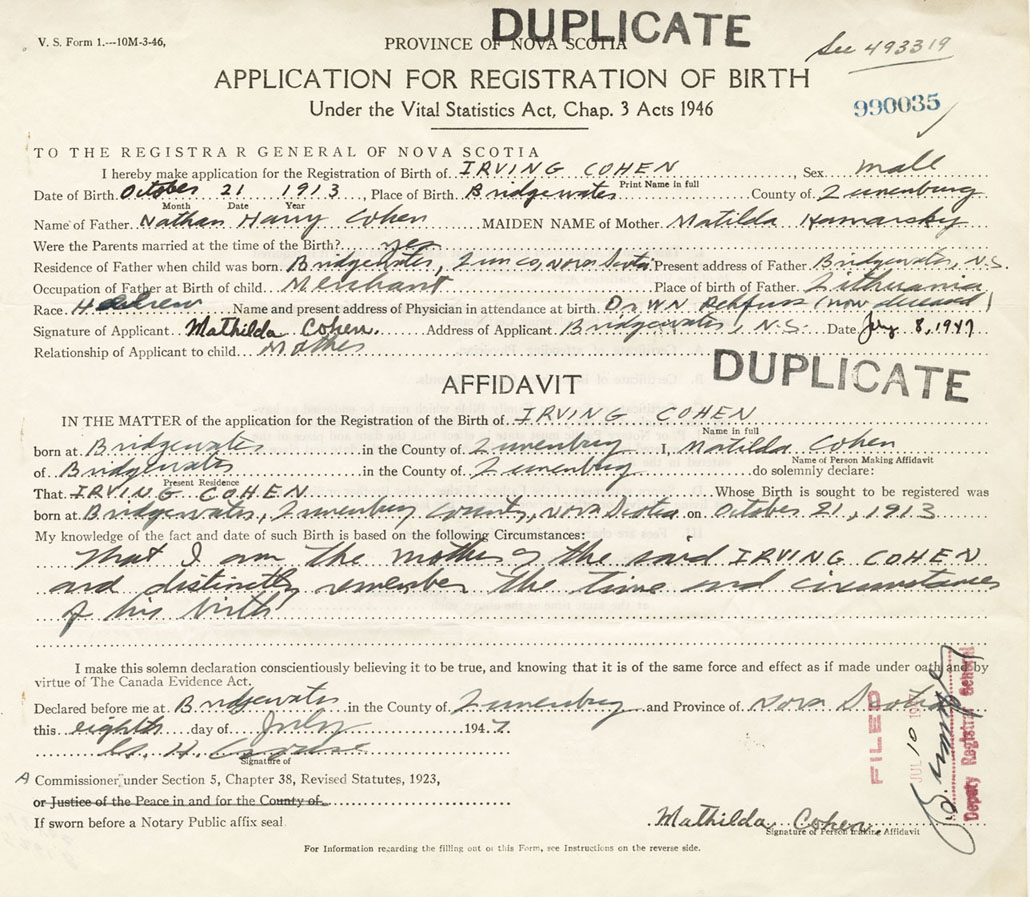 DUPLICATE
V. S. Form 1.—10M-3-46,
PROVINCE OF NOVA SCOTIA
See 493319
APPLICATION FOR REGISTRATION OF BIRTH
Under the Vital Statistics Act, Chap. 3 Acts 1946
990035
TO THE REGISTRAR GENERAL OF NOVA SCOTIA
I hereby make application for the Registration of Birth of IRVING COHEN, Sex male
Print Name in full
Date of Birth October 21 1913, Place of Birth Bridgewater County of Lunenburg
Month Date Year
Name of Father Nathan Harry Cohen MAIDEN NAME of Mother Matilda Komarsky
Were the Parents married at the time of the Birth? yes
Residence of Father when child was born Bridgewater, Lun co, Nova Scotia Present address of Father Bridgewater, N.S.
Occupation of Father at Birth of child Merchant Place of birth of Father Lithuania
Race Hebrew Name and present address of Physician in attendance at birth Dr. W N Rehfuss (now deceased)
Signature of Applicant Mathilda Cohen. Address of Applicant Bridgewater, N.S. Date July 8, 1947
Relationship of Applicant to child Mother
DUPLICATE
AFFIDAVIT
IN THE MATTER of the application for the Registration of the Birth of IRVING COHEN
Name in full
born at Bridgewater in the County of Lunenburg I, Matilda Cohen
Name of Person Making Affidavit
of Bridgewater in the County of Lunenburg do solemnly declare:
Present Residence
That IRVING COHEN Whose Birth is sought to be registered was
born at Bridgewater, Lunenburg County, Nova Scotia on October 21, 1913
My knowledge of the fact and date of such Birth is based on the following Circumstances:
That I am the mother of the said IRVING COHEN
and distinctly remember the time and circumstances
of his birth
I make this solemn declaration conscientiously believing it to be true, and knowing that it is of the same force and effect as if made under oath and by
virtue of The Canada Evidence Act.
Declared before me at Bridgewater in the County of Lunenburg and Province of Nova Scotia
this eighth day of July 1947
Signature of
A Commissioner under Section 5, Chapter 38, Revised Statutes, 1923,
or Justice of the Peace in and for the County of
If sworn before a Notary Public affix seal
Mathilda Cohen
Signature of Person making Affidavit
FILED
JUL 10 1947
Deputy Registrar General
For Information regarding the filling out of this Form, see Instructions on the reverse side.